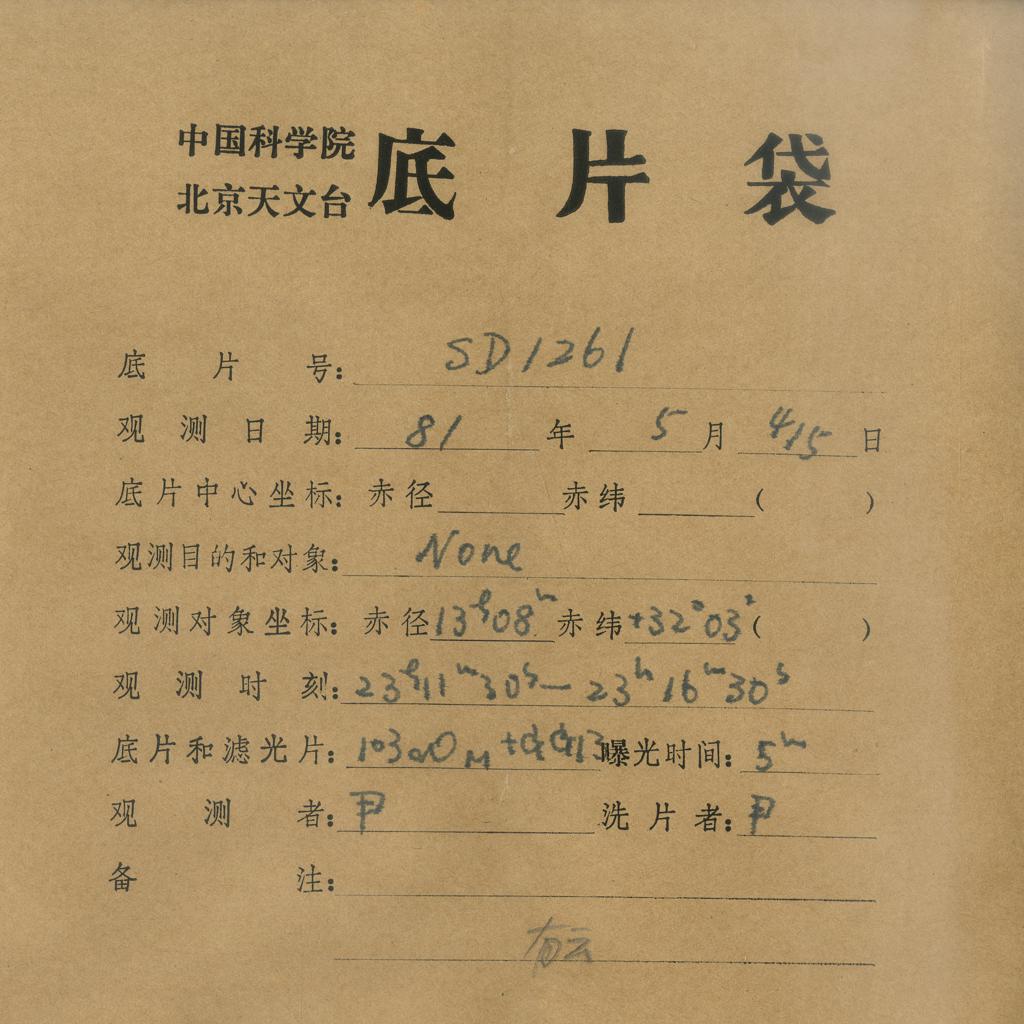 中国科学院
北京天文台
底片袋
底片号: SD1261
观测日期: 81 年 5 月 4/15 日
底片中心坐标: 赤径 赤纬 ( )
观测目的和对象: None
观测对象坐标: 赤径 13h08m 赤纬 +32°03′ ( )
观测时刻: 23h11m30s — 23h16m30s
底片和滤光片: 曝光时间: 5m
观测者: 尹 洗片者: 尹
备注:
有云